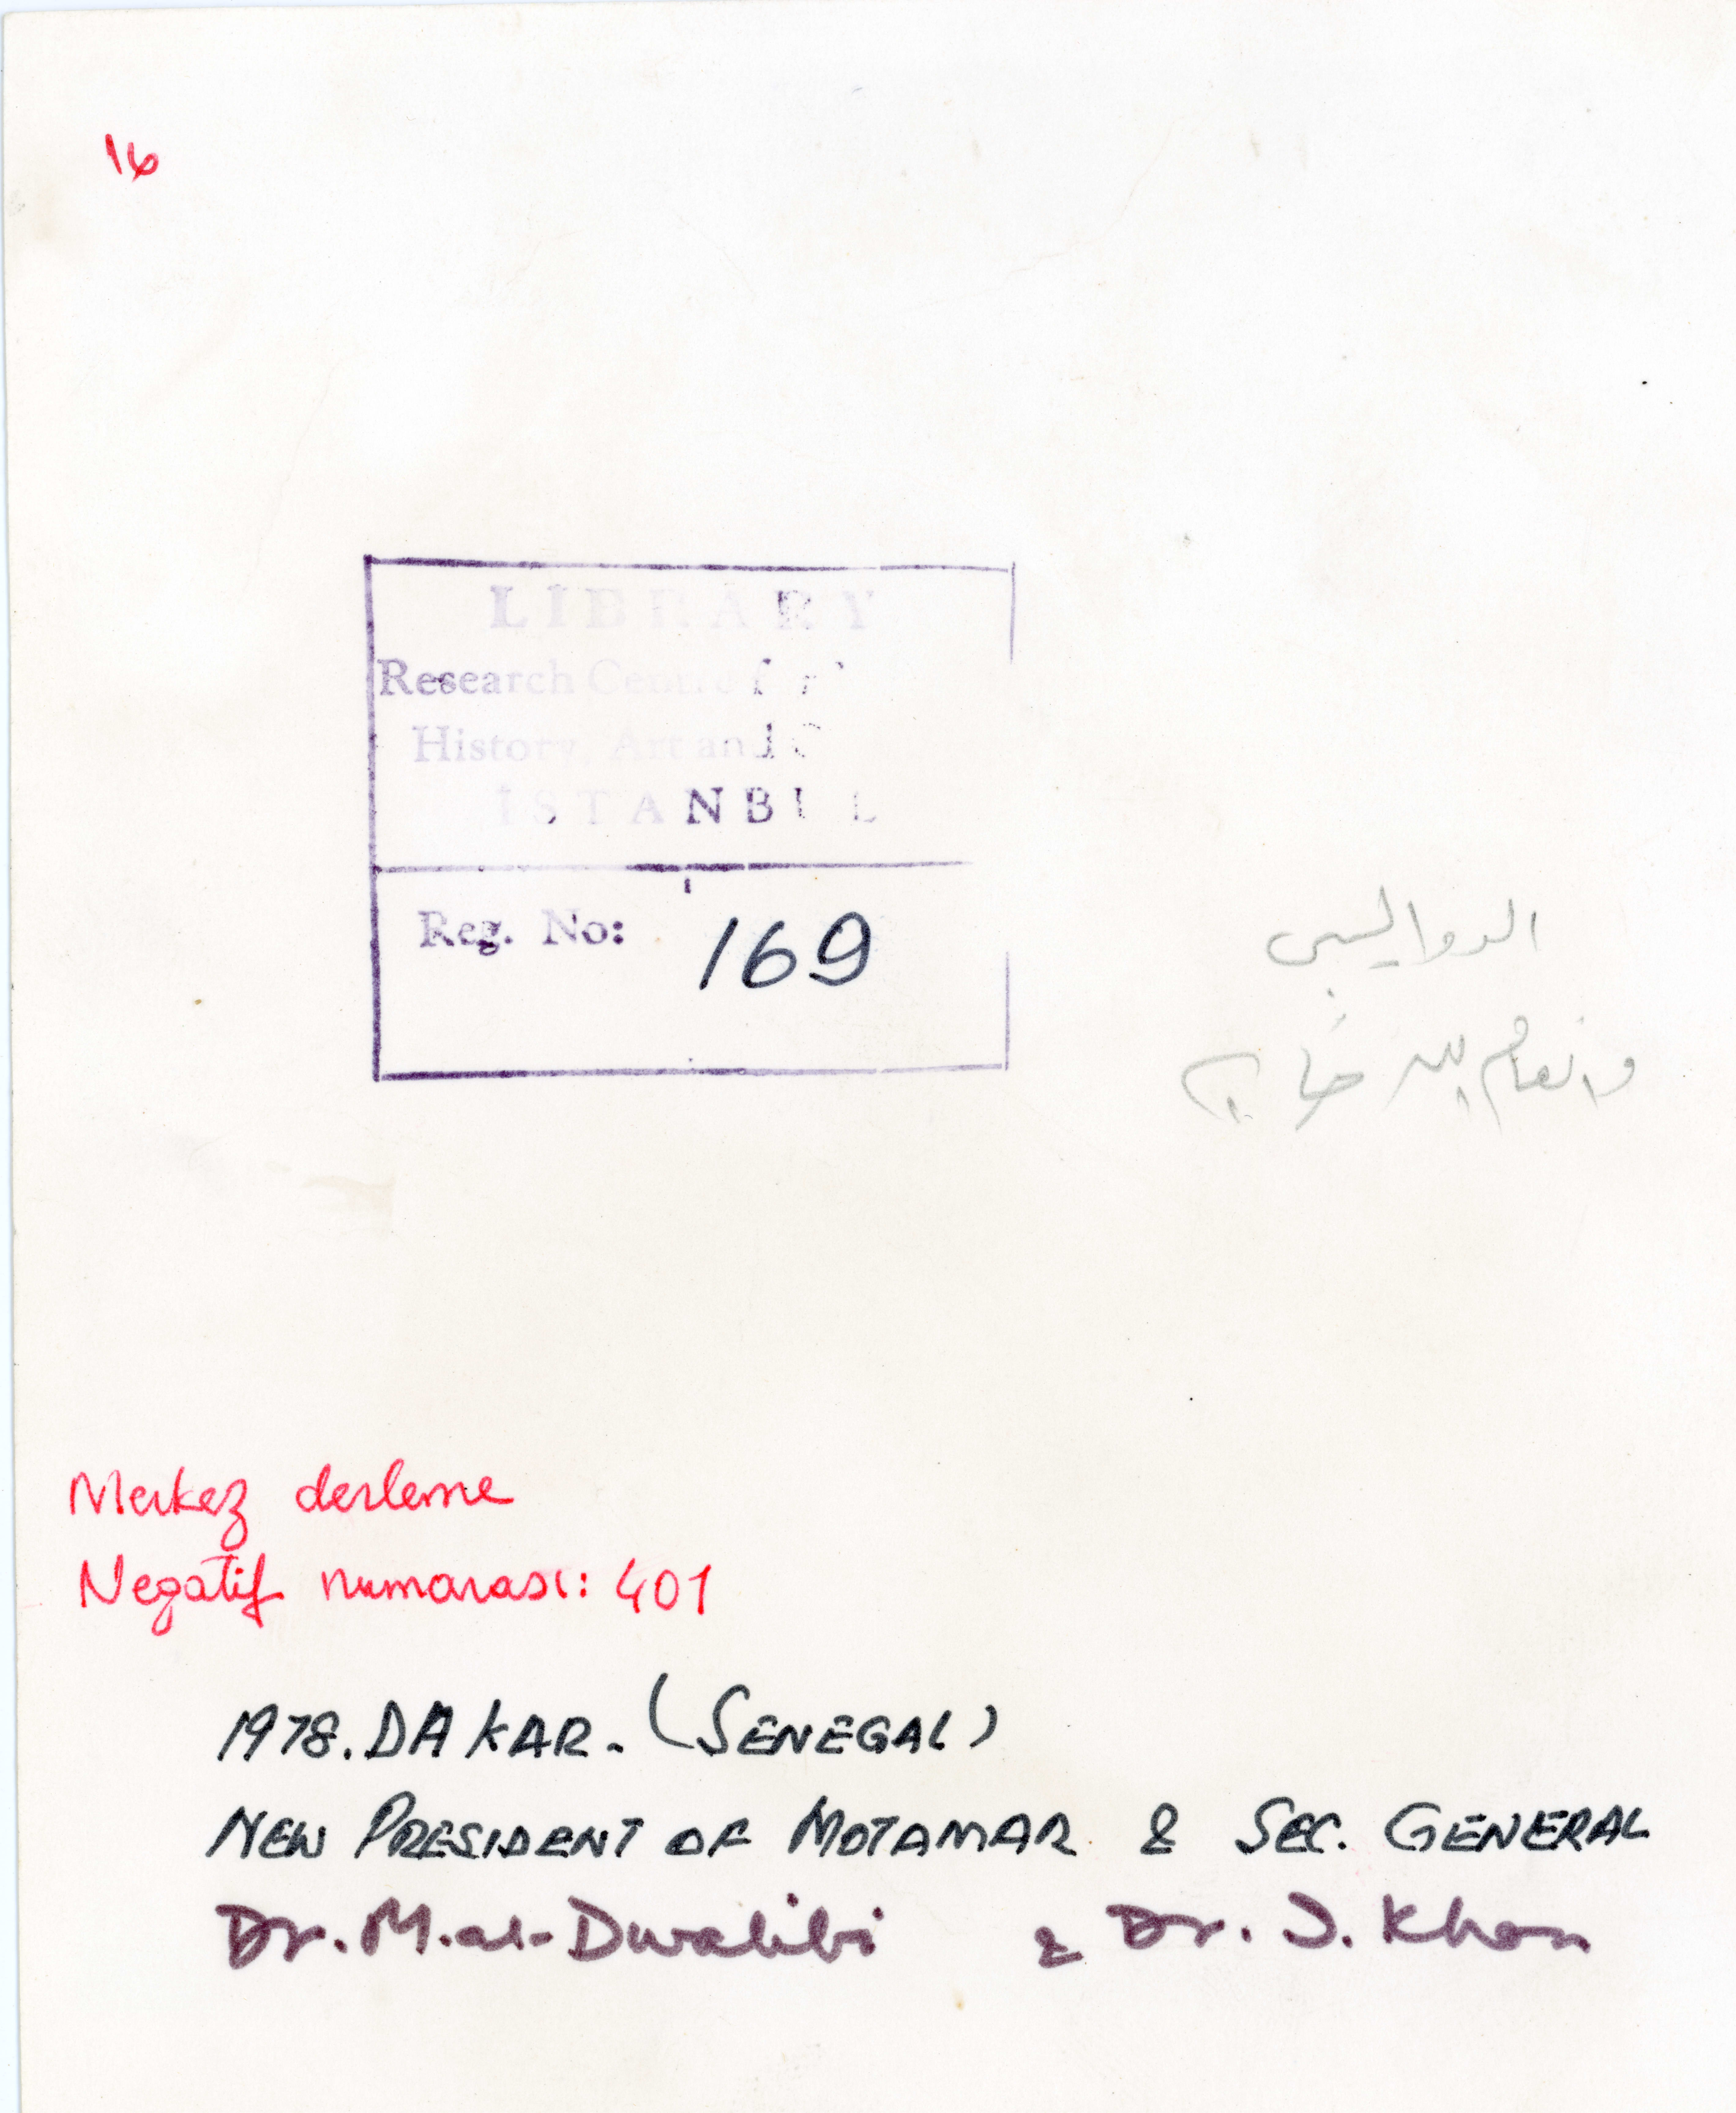 16
LİBRARY
Research Centre f
History, Art and C
İSTANBUL
Reg. No: 169
الدواليبي
وانعام الله خان
Merkez derleme
Negatif numarası: 401
1978. DAKAR. (SENEGAL)
NEW PRESIDENT OF MOTAMAR & SEC. GENERAL
Dr. M. al-Dwalibi & Dr. I. Khan